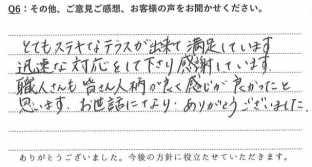 Q6：その他、ご意見ご感想、お客様の声をお聞かせください。
とてもステキなテラスが出来て満足しています
迅速な対応をして下さり感謝しています
職人さんも皆さん人柄が良く感じが良かったと
思います。お世話になり、ありがとうございました。
ありがとうございました。今後の方針に役立たせていただきます。